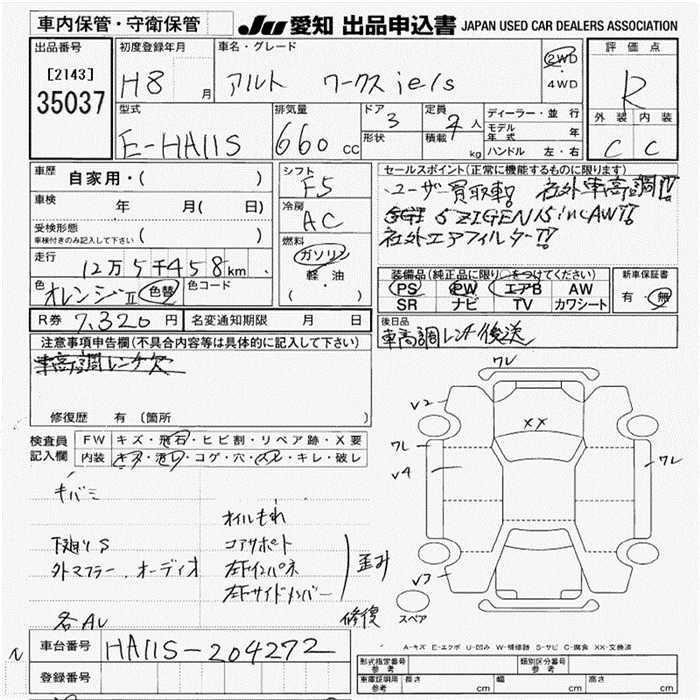 車内保管・守衛保管
JU 愛知 出品申込書 JAPAN USED CAR DEALERS ASSOCIATION
出品番号
[2143]
35037
初度登録年月
H8 月
車名・グレード
アルト ワークスie/s
2WD
・
4WD
評価点
R
外装 内装
C C
型式
E-HA11S
排気量
660 cc
ドア 3
形状
定員 4 人
積載 kg
ディーラー・並行
モデル年式 年
ハンドル 左・右
車歴
自家用・( )
車検
年 月( 日)
受検形態
車検付きのみ記入して下さい ( )
走行
12万5千458km
色
オレンジⅡ 色替
色コード
R券 7,320 円
名変通知期限 月 日
シフト
F5
冷房
AC
燃料
ガソリン
軽・油
( )
セールスポイント(正常に機能するものに限ります)
ユーザー買取車! 社外車高調!!
5ZIGEN
社外エアフィルター!!
装備品(純正品に限り○をつけてください)
PS PW エアB AW
SR ナビ TV カワシート
新車保証書
有・無
後日品
車高調レンチ後送
注意事項申告欄(不具合内容等は具体的に記入して下さい)
車高調レンチ欠
修復歴 有(箇所 )
検査員記入欄
FW キズ・飛石・ヒビ割・リペア跡・X要
内装 キズ・汚れ・コゲ・穴・スレ・キレ・破レ
キバミ
オイルもれ
下廻りS コアサポート
外マフラー.オーディオ 左下インパネ 歪み
左下サイドメンバー
修復
各AU
ワレ
V2
XX
ワレ
V4
ワレ
V7
スペア
車台番号
HA11S-204272
登録番号
A-キズ E-エクボ U-凹み W-補修跡 S-サビ C-腐食 XX-交換済
形式指定番号
参考
類別区分番号
参考
車庫証明用
参考
長さ cm 幅 cm 高さ cm